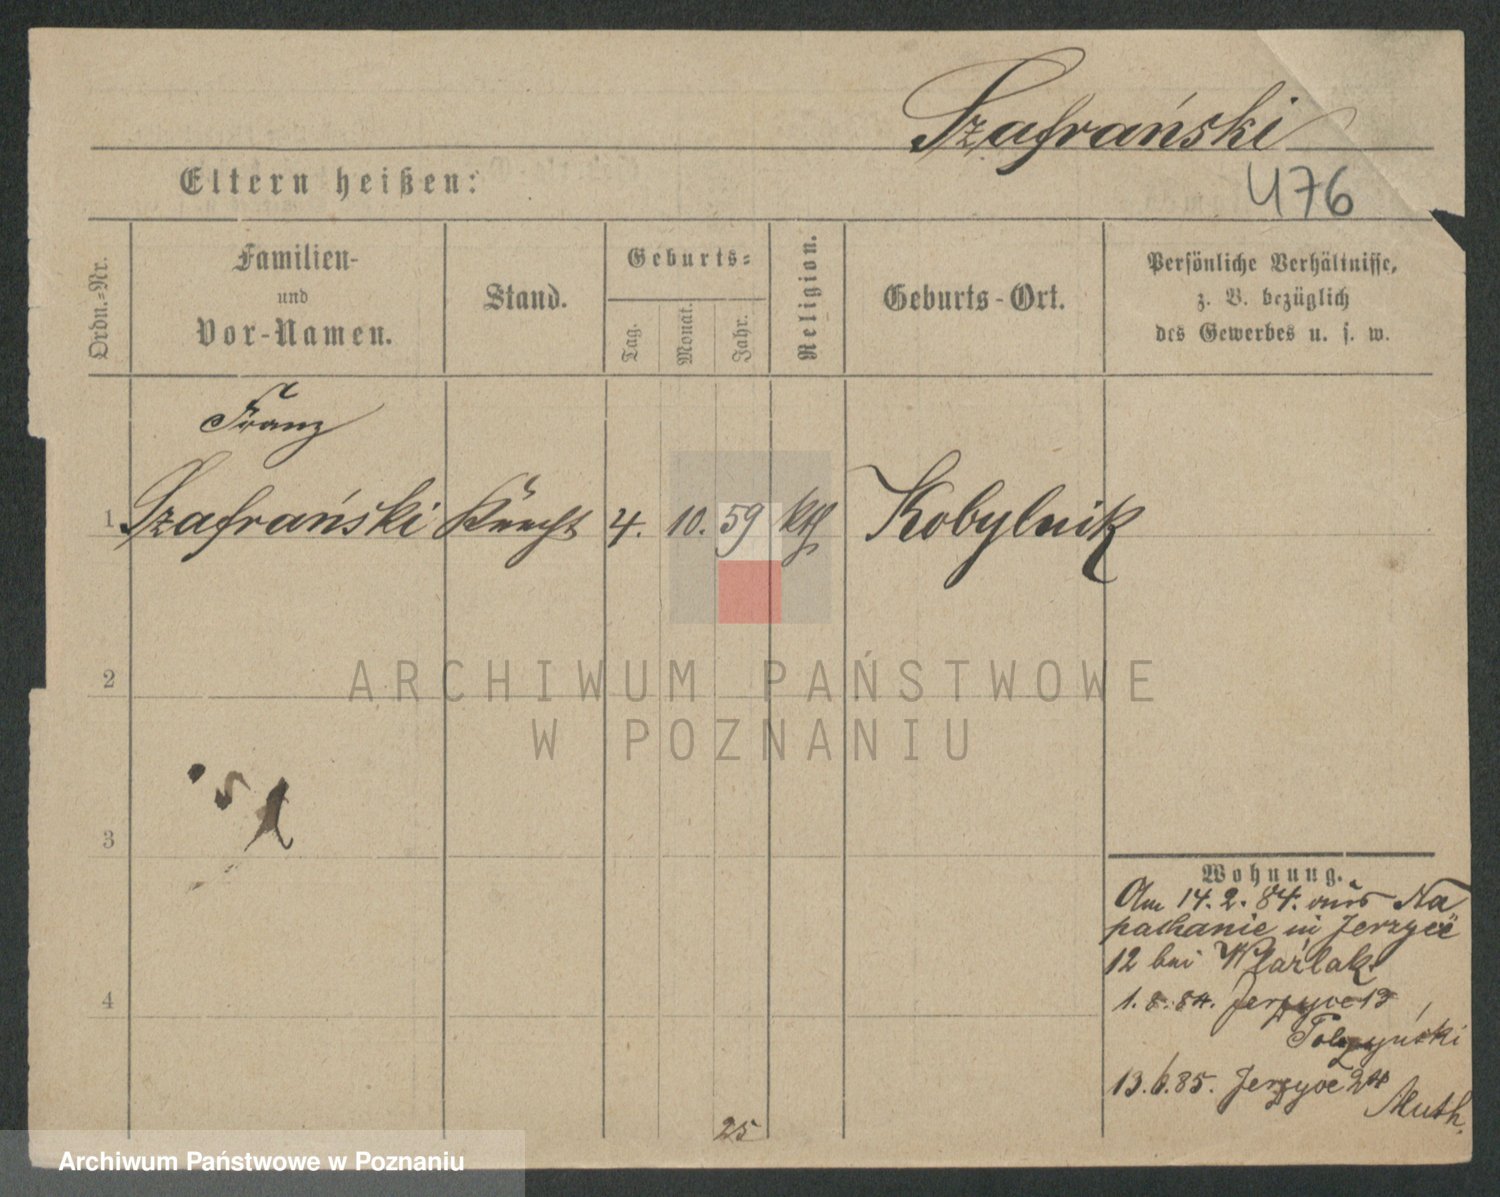 Szafrański
476
Eltern heißen:
Ordn.=Nr.
Familien-
und
Vor-Namen.
Stand.
Geburts=
Tag.
Monat.
Jahr.
Religion.
Geburts-Ort.
Persönliche Verhältnisse,
z. B. bezüglich
des Gewerbes u. s. w.
Franz
1 Szafrański Knecht 4. 10. 59 kth Kobylnik
2
ARCHIWUM PAŃSTWOWE
W POZNANIU
3
4
Wohnung.
Am 14.2.84. aus Na
pachanie in Jerzyce
12 bei
1.8.84. Jerzyce 13
13.6.85. Jerzyce 24
Muth.
25
Archiwum Państwowe w Poznaniu